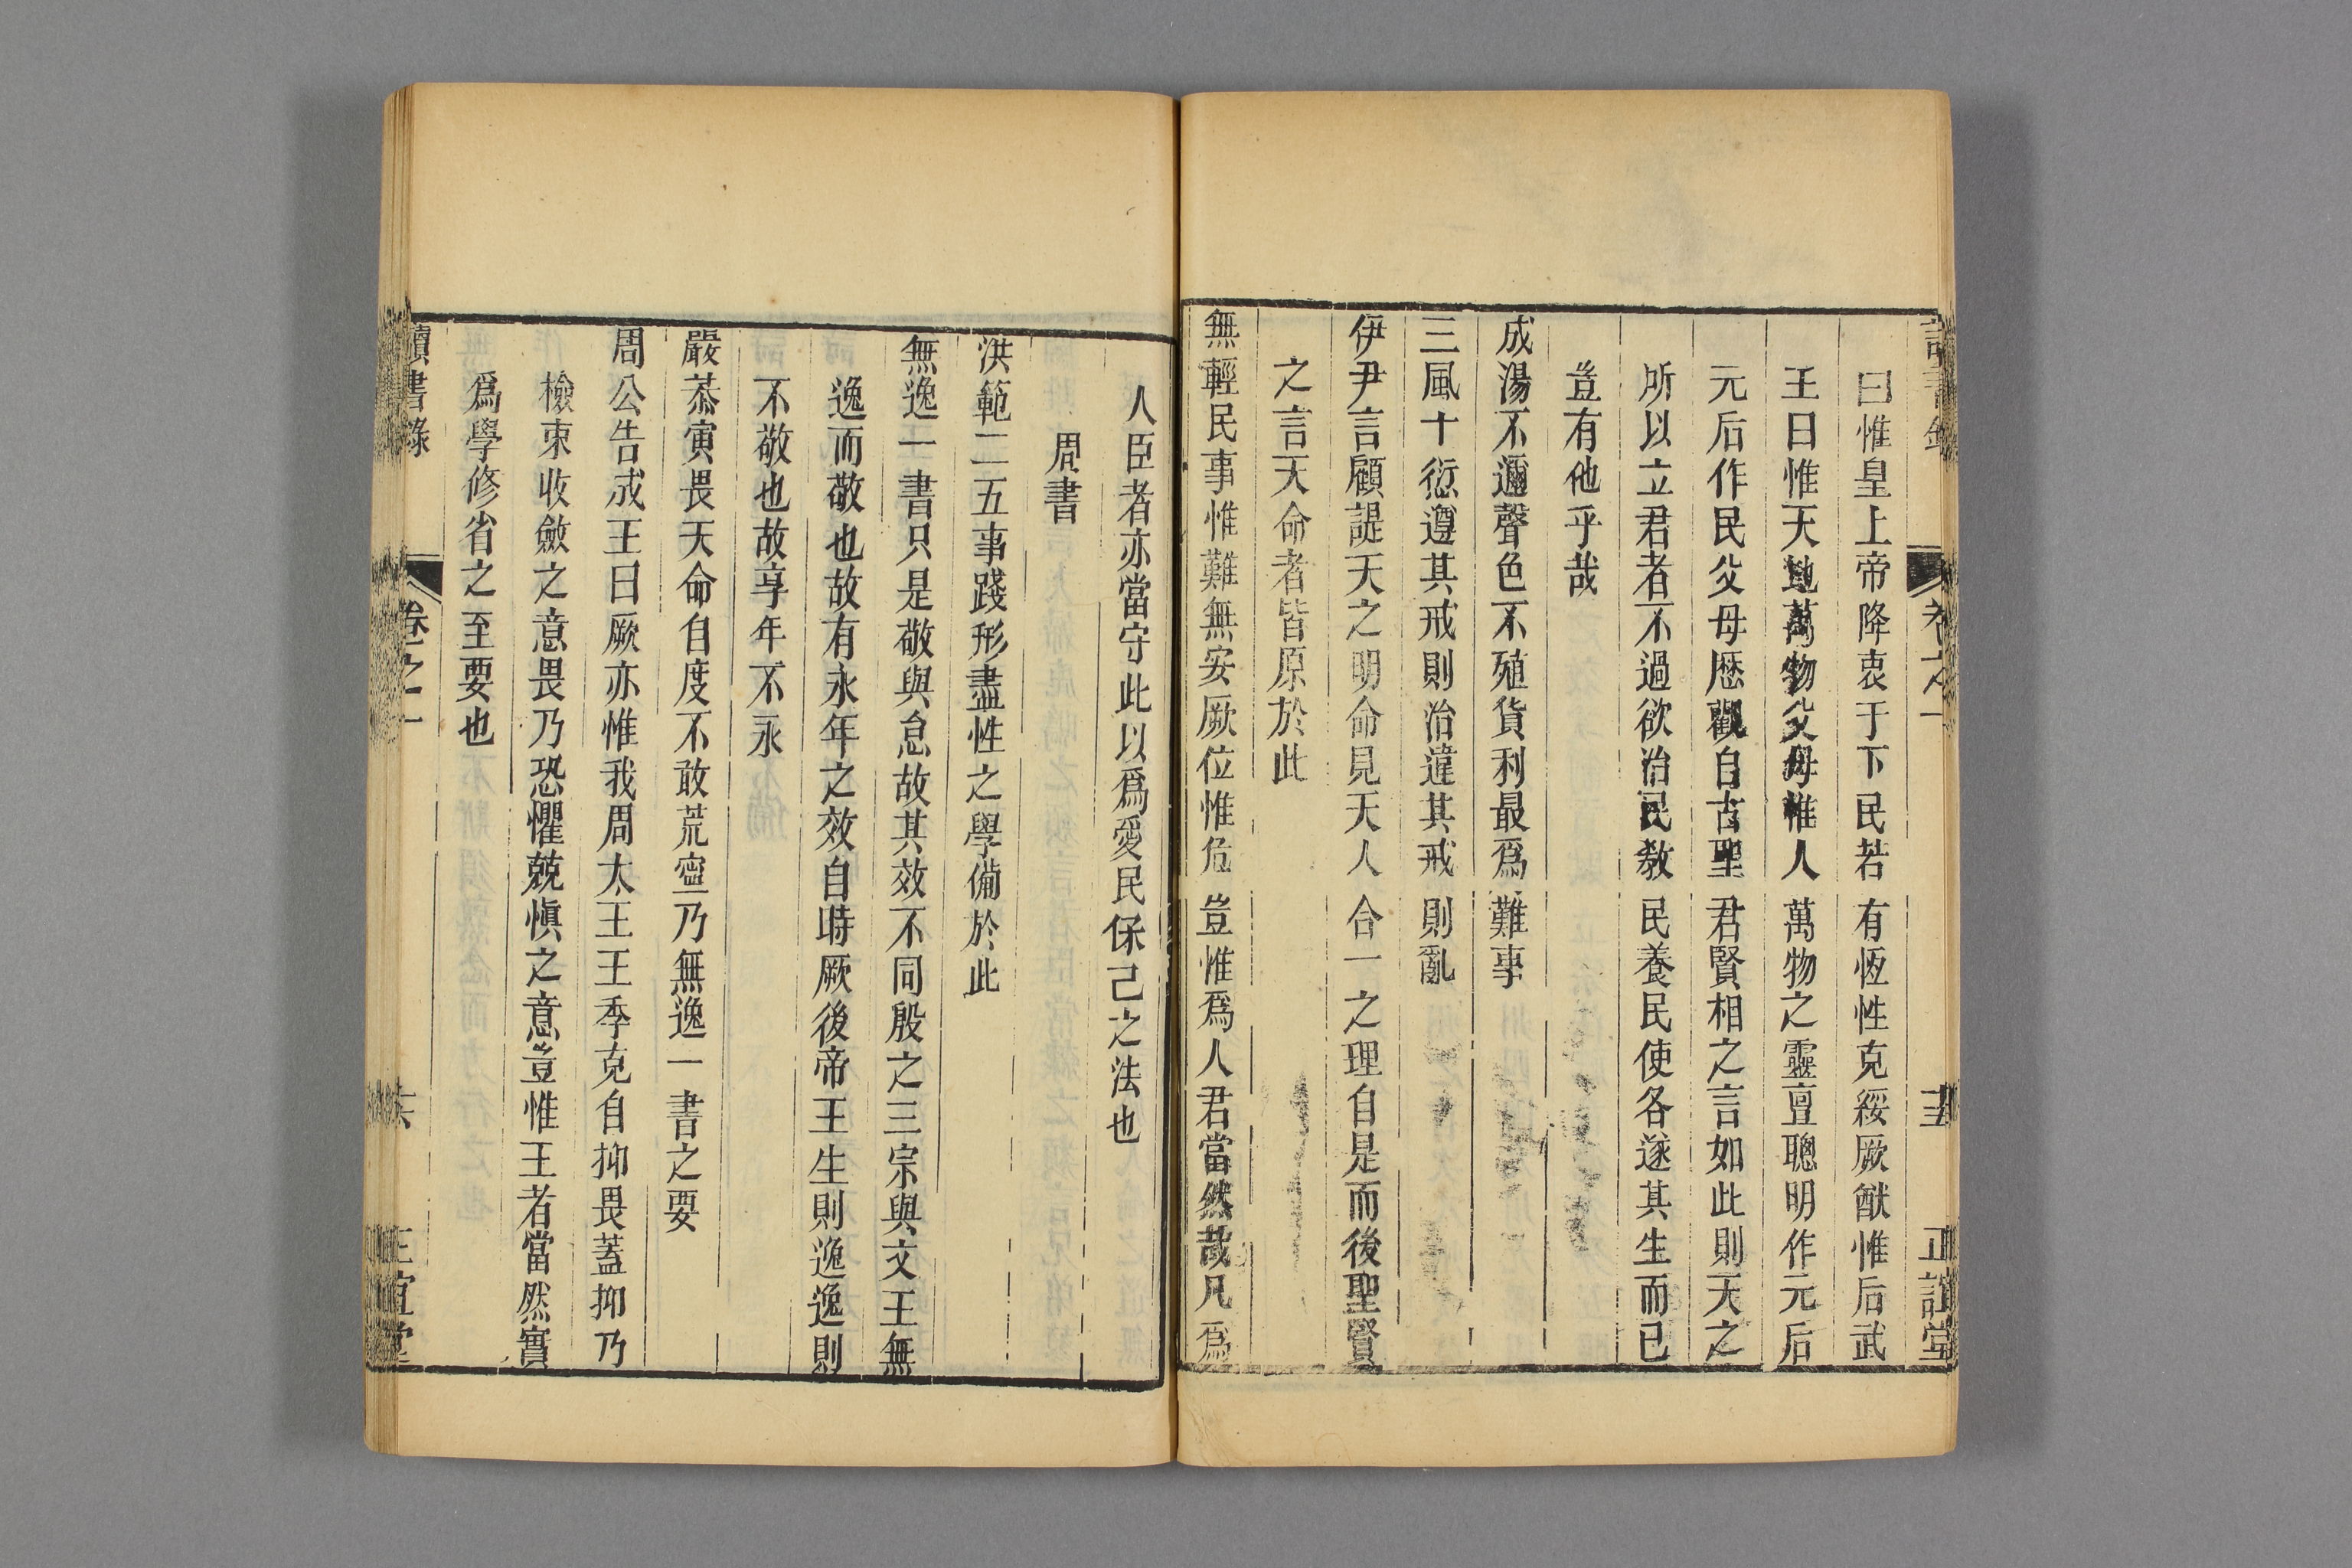 讀書錄 卷之一 十五 正誼堂
曰惟皇上帝降衷于下民若有恆性克綏厥猷惟后武
王曰惟天地萬物父母惟人萬物之靈亶聰明作元后
元后作民父母歷觀自古聖君賢相之言如此則天之
所以立君者不過欲治民教民養民使各遂其生而已
豈有他乎哉
成湯不邇聲色不殖貨利最爲難事
三風十愆遵其戒則治違其戒則亂
伊尹言顧諟天之明命見天人合一之理自是而後聖賢
之言天命者皆原於此
無輕民事惟難無安厥位惟危豈惟爲人君當然哉凡爲
人臣者亦當守此以爲愛民保己之法也
周書
洪範二五事踐形盡性之學備於此
無逸一書只是敬與怠故其效不同殷之三宗與文王無
逸而敬也故有永年之效自時厥後帝王生則逸逸則
不敬也故享年不永
嚴恭寅畏天命自度不敢荒寧乃無逸一書之要
周公告成王曰厥亦惟我周太王王季克自抑畏蓋抑乃
檢束收斂之意畏乃恐懼兢愼之意豈惟王者當然實
爲學修省之至要也
讀書錄 卷之一 十六 正誼堂